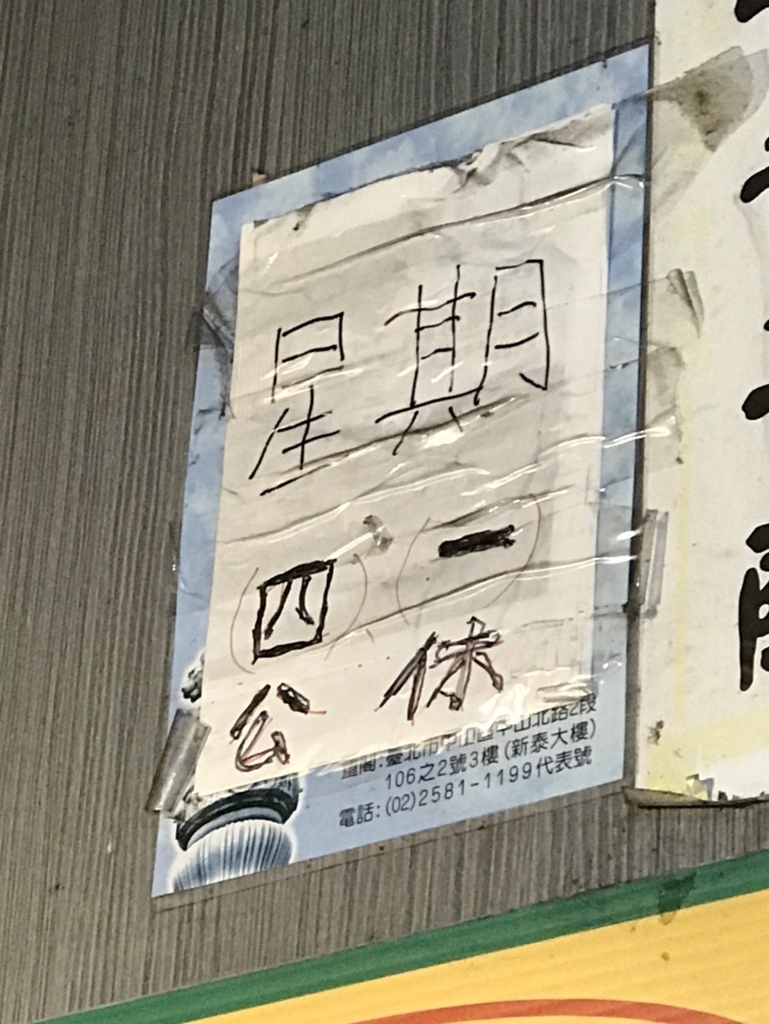 星期
(四)、(一)
公休
臺北市中山區中山北路2段
106之2號3樓(新泰大樓)
電話:(02)2581-1199代表號